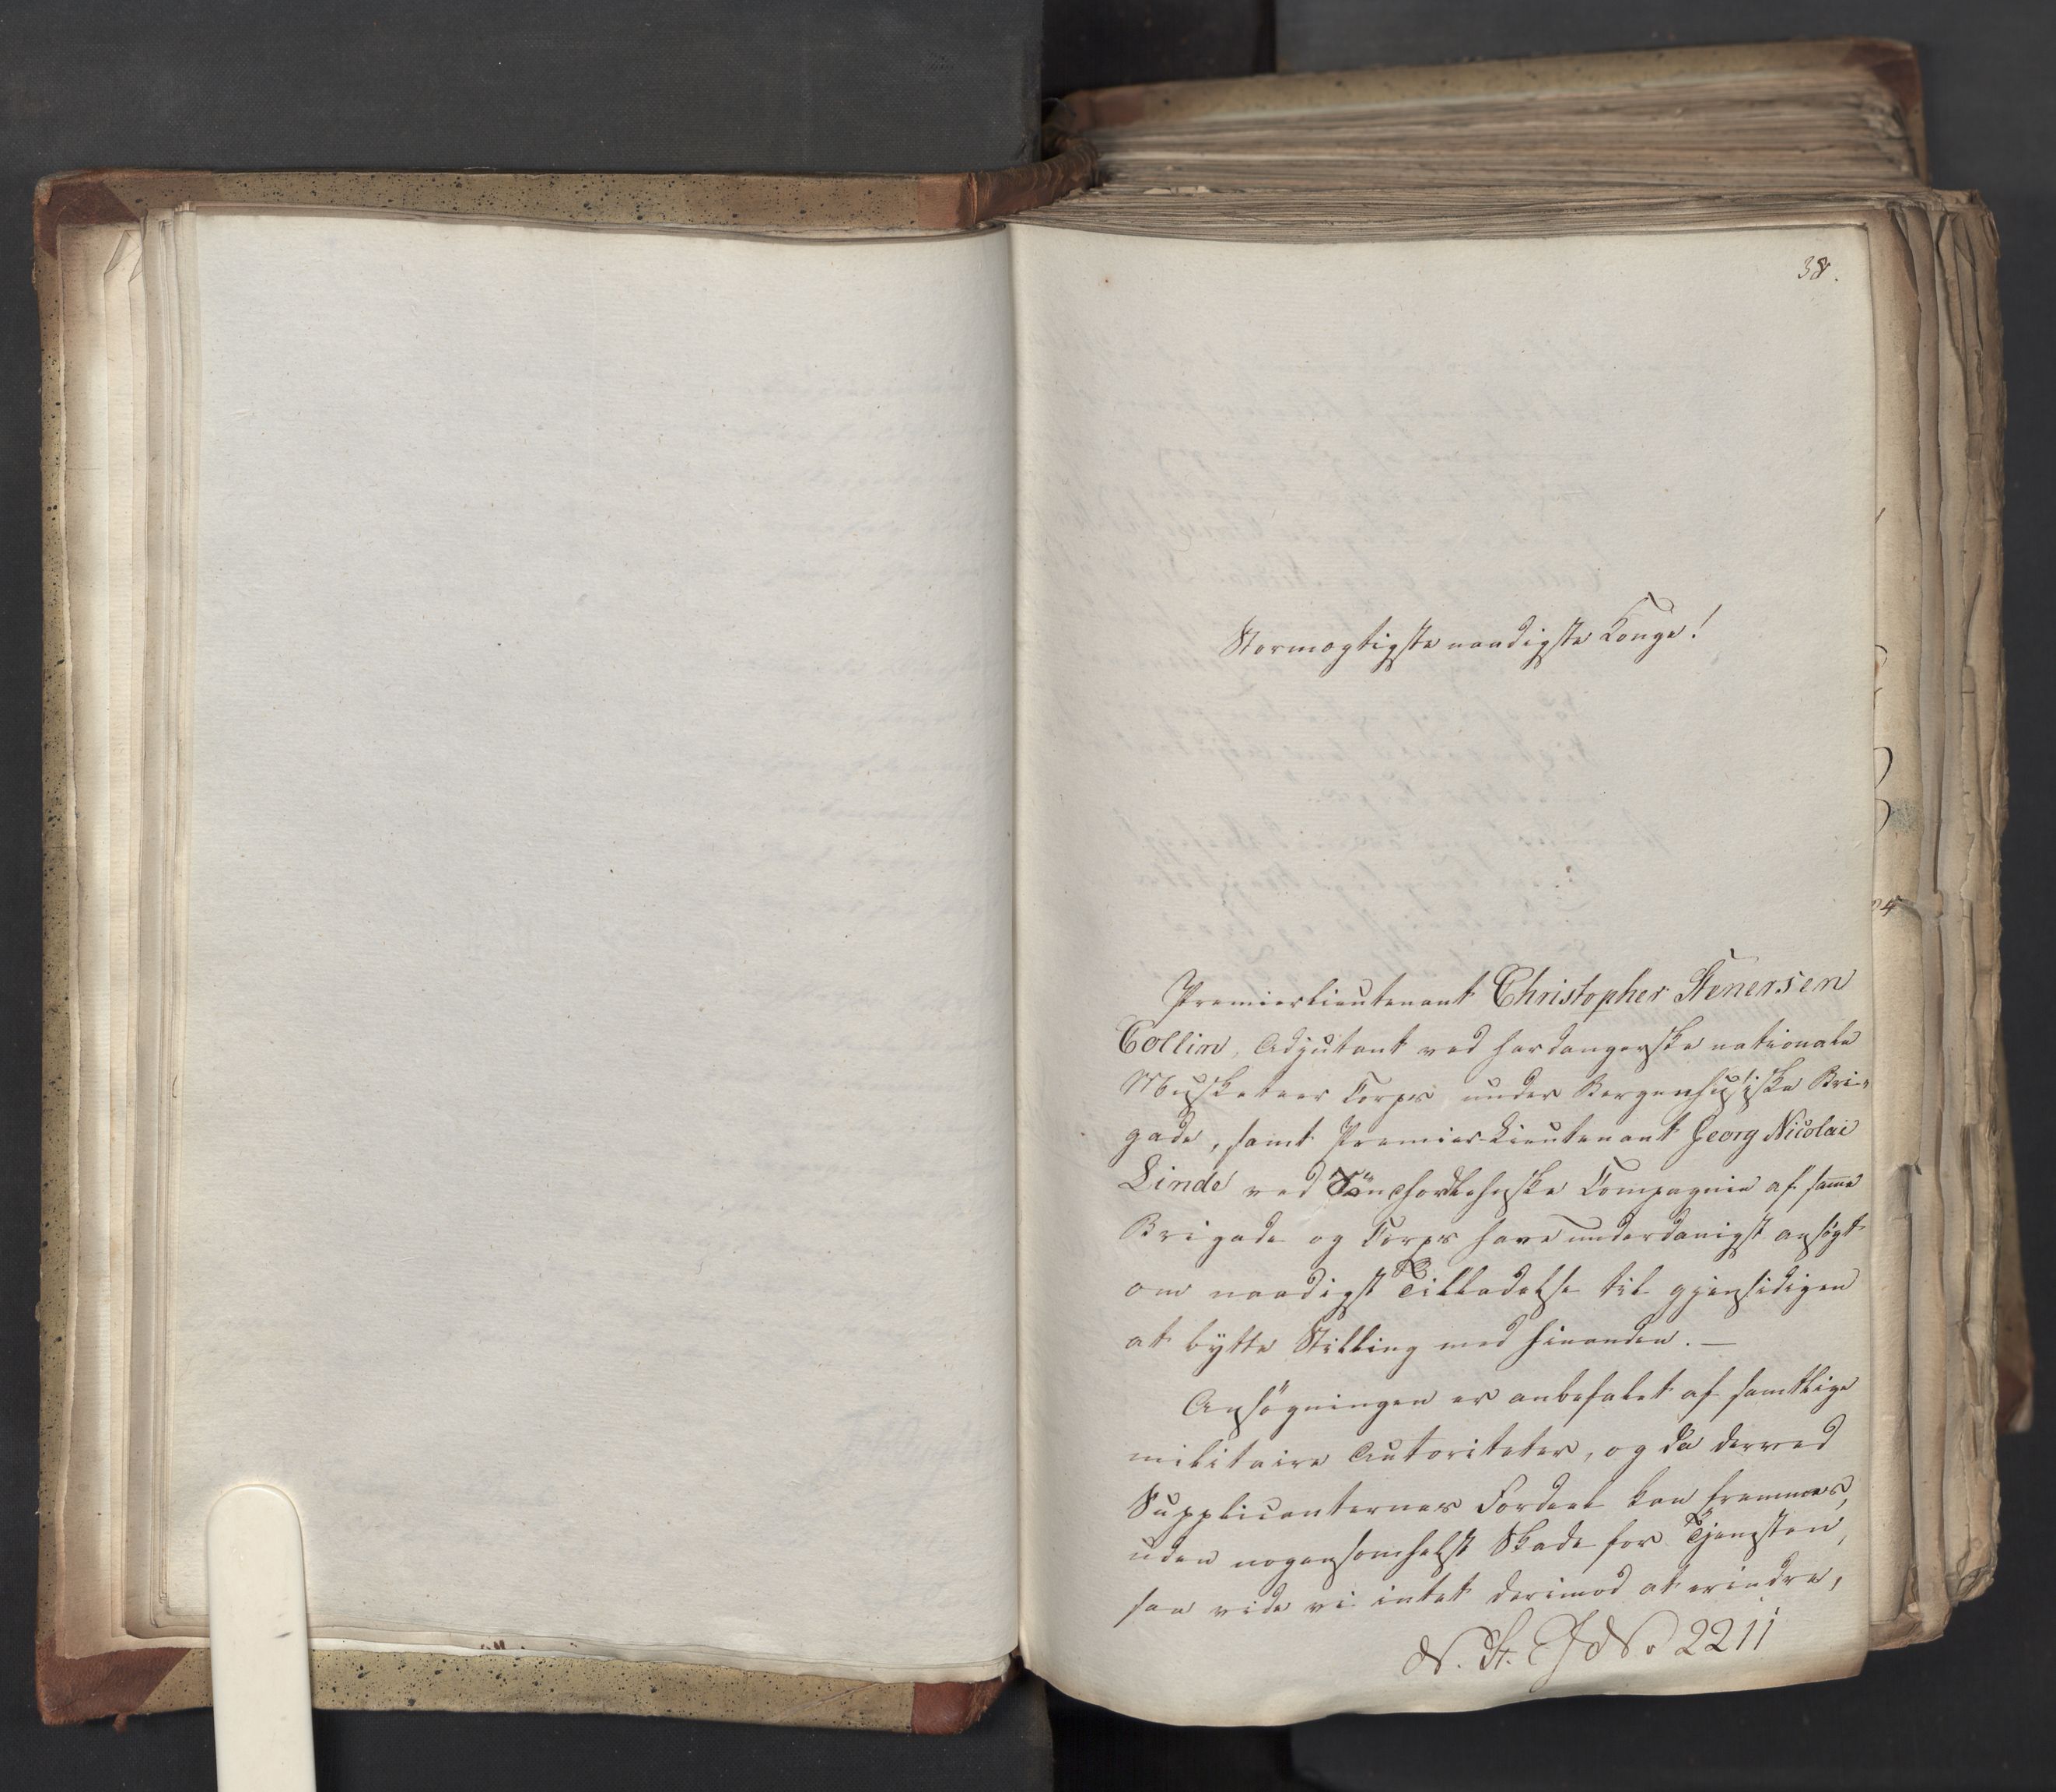 38.
Stormægtigste naadigste Konge!
Premierlieutenant Christopher Stenersen
Collin, Adjutant ved hardangerske nationale
Musketeer Corps under Bergenhusiske Bri-
gade, samt Premier-Lieutenant Georg Nicolai
Linde ved Söndhordlehnske Compagnie af samme
Brigade og Corps have underdanigst ansøgt
om naadigst Tilladelse til gjensidigen
at bytte Stilling med hinanden. —
Ansøgningen er anbefalet af samtlige
militaire Autoriteter, og da derved
Supplicanternes Fordeel kan fremmes,
uden nogensomhelst Skade for Tjensten,
saa vide vi intet derimod at erindre,
N. St. J No 2211